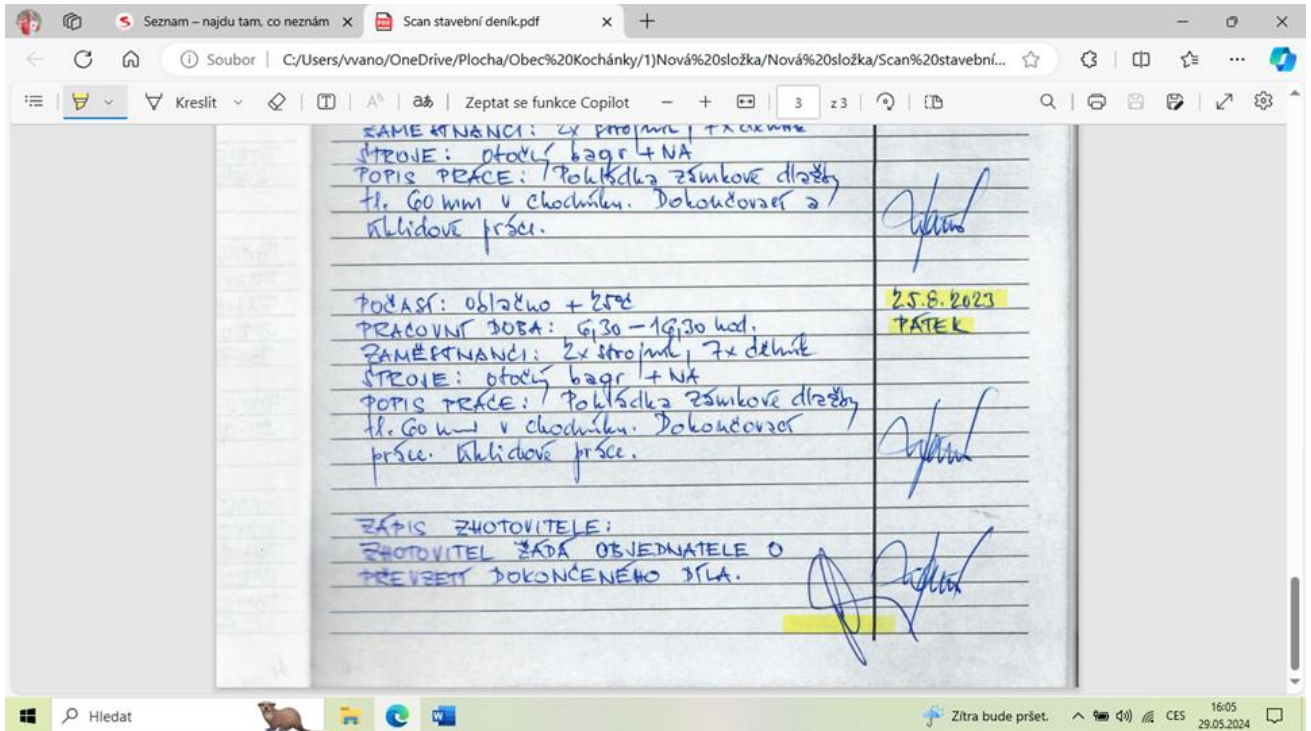 Seznam – najdu tam, co neznám
Scan stavební deník.pdf
Soubor
C:/Users/vvano/OneDrive/Plocha/Obec%20Kochánky/1)Nová%20složka/Nová%20složka/Scan%20stavební...
Kreslit
Zeptat se funkce Copilot
3 z 3
ZAMĚSTNANCI: 2x strojník, 7x dělník
STROJE: otočný bagr + NA
POPIS PRÁCE: Pokládka zámkové dlažby
tl. 60 mm v chodníku. Dokončovací a
úklidové práce.
POČASÍ: oblačno + 25°C
25.8.2023
PRACOVNÍ DOBA: 6,30 – 16,30 hod.
PÁTEK
ZAMĚSTNANCI: 2x strojník, 7x dělník
STROJE: otočný bagr + NA
POPIS PRÁCE: Pokládka zámkové dlažby
tl. 60 mm v chodníku. Dokončovací
práce. Úklidové práce.
ZÁPIS ZHOTOVITELE:
ZHOTOVITEL ŽÁDÁ OBJEDNATELE O
PŘEVZETÍ DOKONČENÉHO DÍLA.
Hledat
Zítra bude pršet.
CES
16:05
29.05.2024